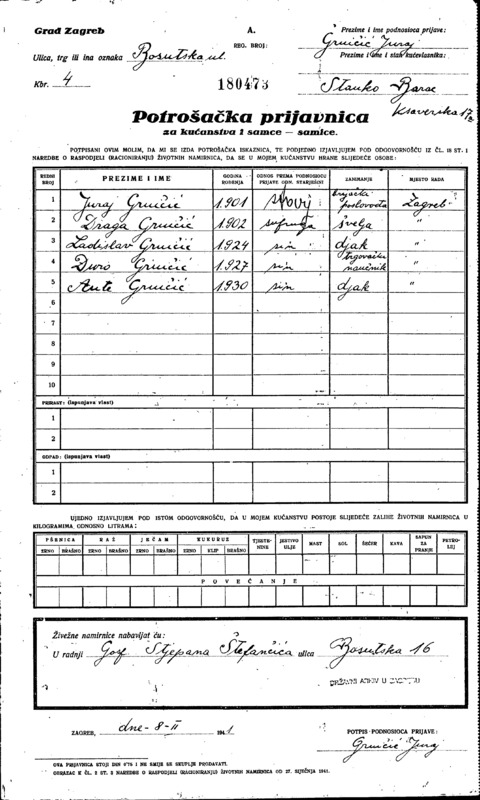 Grad Zagreb
A.
REG. BROJ:
Prezime i ime podnosioca prijave:
Gruičić Juraj
Ulica, trg ili ina oznaka Bosutska ul.
Prezime i ime i stan kućevlasnika:
Kbr. 4
180473
Stanko Barac
Ksaverska 17a
Potrošačka prijavnica
za kućanstva i samce — samice.
POTPISANI OVIM MOLIM, DA MI SE IZDA POTROŠAČKA ISKAZNICA, TE PODJEDNO IZJAVLJUJEM POD ODGOVORNOŠĆU IZ ČL. 18 ST. 1
NAREDBE O RASPODJELI (RACIONIRANJU) ŽIVOTNIH NAMIRNICA, DA SE U MOJEM KUĆANSTVU HRANE SLIJEDEĆE OSOBE:
REDNI BROJ PREZIME I IME GODINA ROĐENJA ODNOS PREMA PODNOSIOCU PRIJAVE ODN. STARJEŠINI ZANIMANJE MJESTO RADA
1 Juraj Gruičić 1901 Zagreb
2 Draga Gruičić 1902 supruga švelja "
3 Ladislav Gruičić 1924 sin djak "
4 Đuro Gruičić 1927 sin trgovački naučnik "
5 Ante Gruičić 1930 sin djak "
6
7
8
9
10
PRIRAST: (ispunjava vlast)
1
2
OTPAD: (ispunjava vlast)
1
2
UJEDNO IZJAVLJUJEM POD ISTOM ODGOVORNOŠĆU, DA U MOJEM KUĆANSTVU POSTOJE SLIJEDEĆE ZALIHE ŽIVOTNIH NAMIRNICA U
KILOGRAMIMA ODNOSNO LITRAMA:
PŠENICA RAŽ JEČAM KUKURUZ TJESTENINE JESTIVO ULJE MAST SOL ŠEĆER KAVA SAPUN ZA PRANJE PETROLEJ
ZRNO BRAŠNO ZRNO BRAŠNO ZRNO BRAŠNO ZRNO KLIP BRAŠNO
POVEĆANJE
Živežne namirnice nabavljat ću:
U radnji Gosp Stjepana Štefančića ulica Bosutska 16
DRŽAVNI ARHIV U ZAGREBU
ZAGREB, dne-8-II 1941
POTPIS PODNOSIOCA PRIJAVE:
Gruičić Juraj
OVA PRIJAVNICA STOJI DIN 0'75 I NE SMIJE SE SKUPLJE PRODAVATI.
OBRAZAC K ČL. 2 ST. 2 NAREDBE O RASPODJELI (RACIONIRANJU) ŽIVOTNIH NAMIRNICA OD 27. SIJEČNJA 1941.